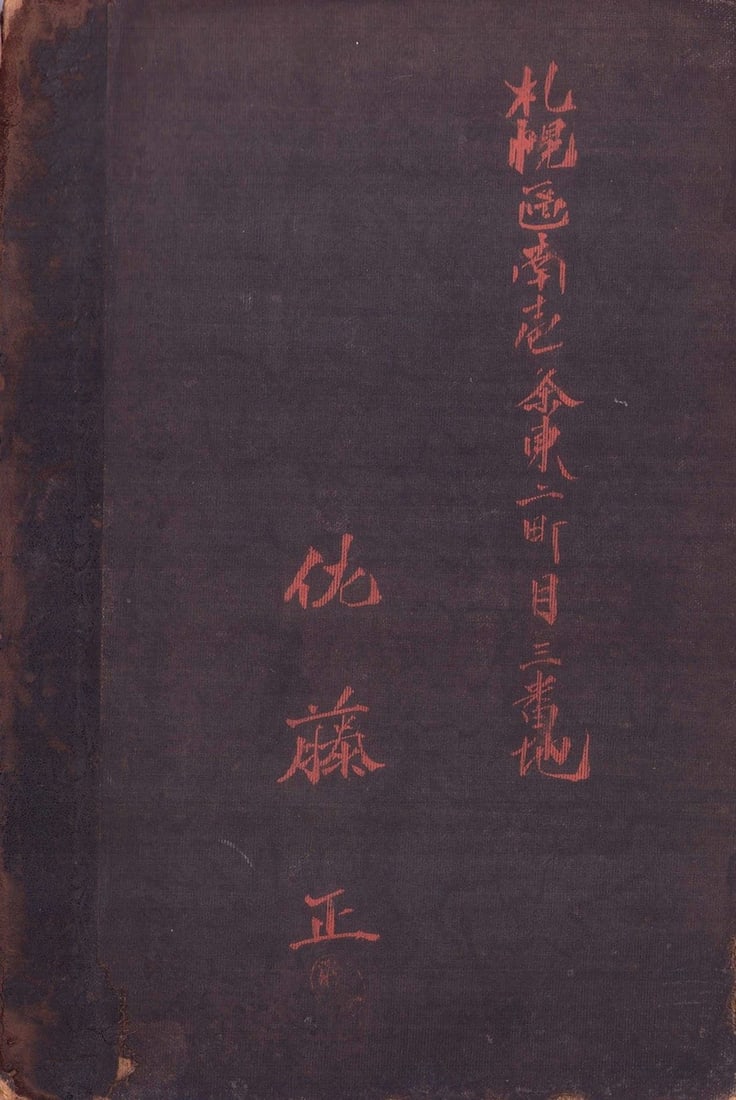 札幌區南壱条東二町目三番地
藤正